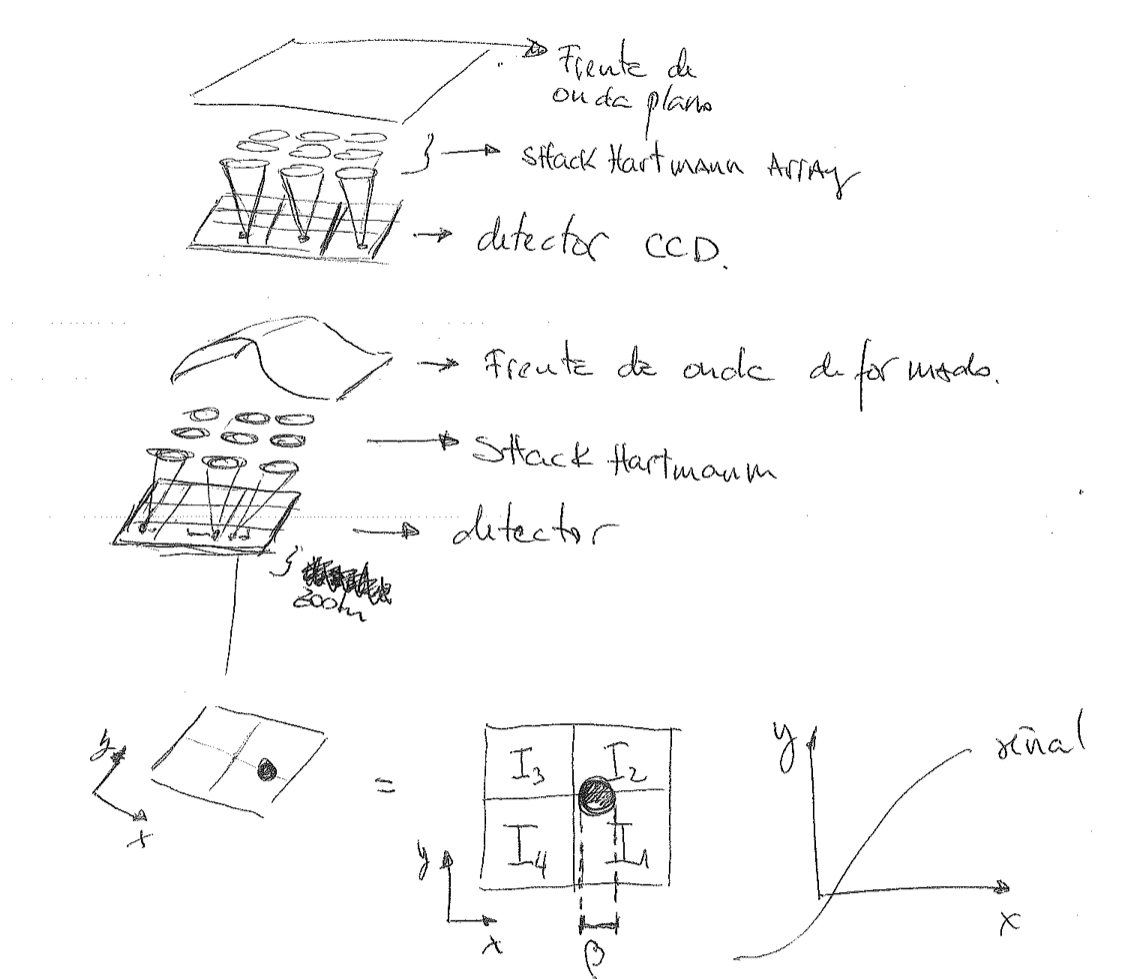 Frente de
onda plano
SHack Hartmann Array
detector CCD.
Frente de onda deformado.
SHack Hartmann
detector
y
x
=
I3 I2
I4 I1
y
x
β
y
señal
x